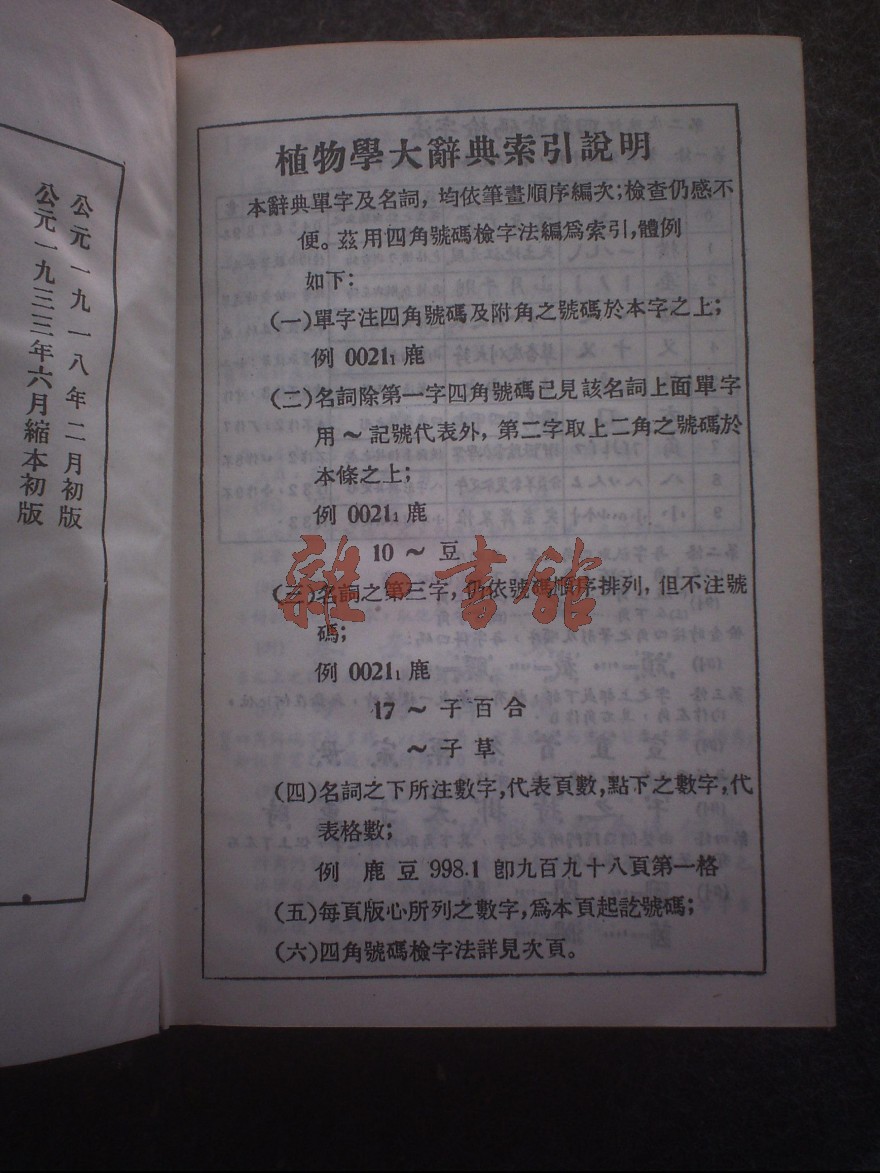 植物學大辭典索引說明
本辭典單字及名詞，均依筆畫順序編次；檢查仍感不
便。茲用四角號碼檢字法編爲索引，體例
如下：
(一)單字注四角號碼及附角之號碼於本字之上；
例 0021₁ 鹿
(二)名詞除第一字四角號碼已見該名詞上面單字
用～記號代表外，第二字取上二角之號碼於
本條之上；
例 0021₁ 鹿
10 ～ 豆
(三)名詞之第三字，仍依號碼順序排列，但不注號
碼；
例 0021₁ 鹿
17 ～ 子百合
～ 子草
(四)名詞之下所注數字，代表頁數，點下之數字，代
表格數；
例 鹿豆 998.1 卽九百九十八頁第一格
(五)每頁版心所列之數字，爲本頁起訖號碼；
(六)四角號碼檢字法詳見次頁。
公元一九一八年二月初版
公元一九三三年六月縮本初版
雜·書館